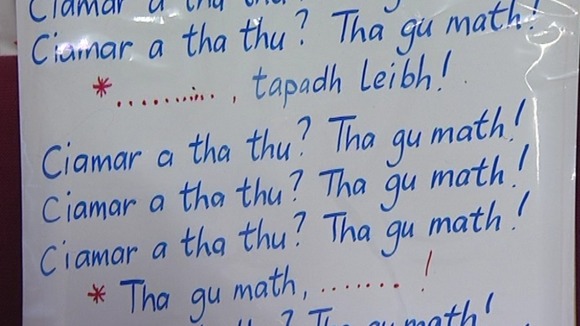 Ciamar a tha thu?
Ciamar a tha thu? Tha gu math!
*.........., tapadh leibh!
Ciamar a tha thu? Tha gu math!
Ciamar a tha thu? Tha gu math!
Ciamar a tha thu? Tha gu math!
* Tha gu math, ....... !
? Tha gu math!